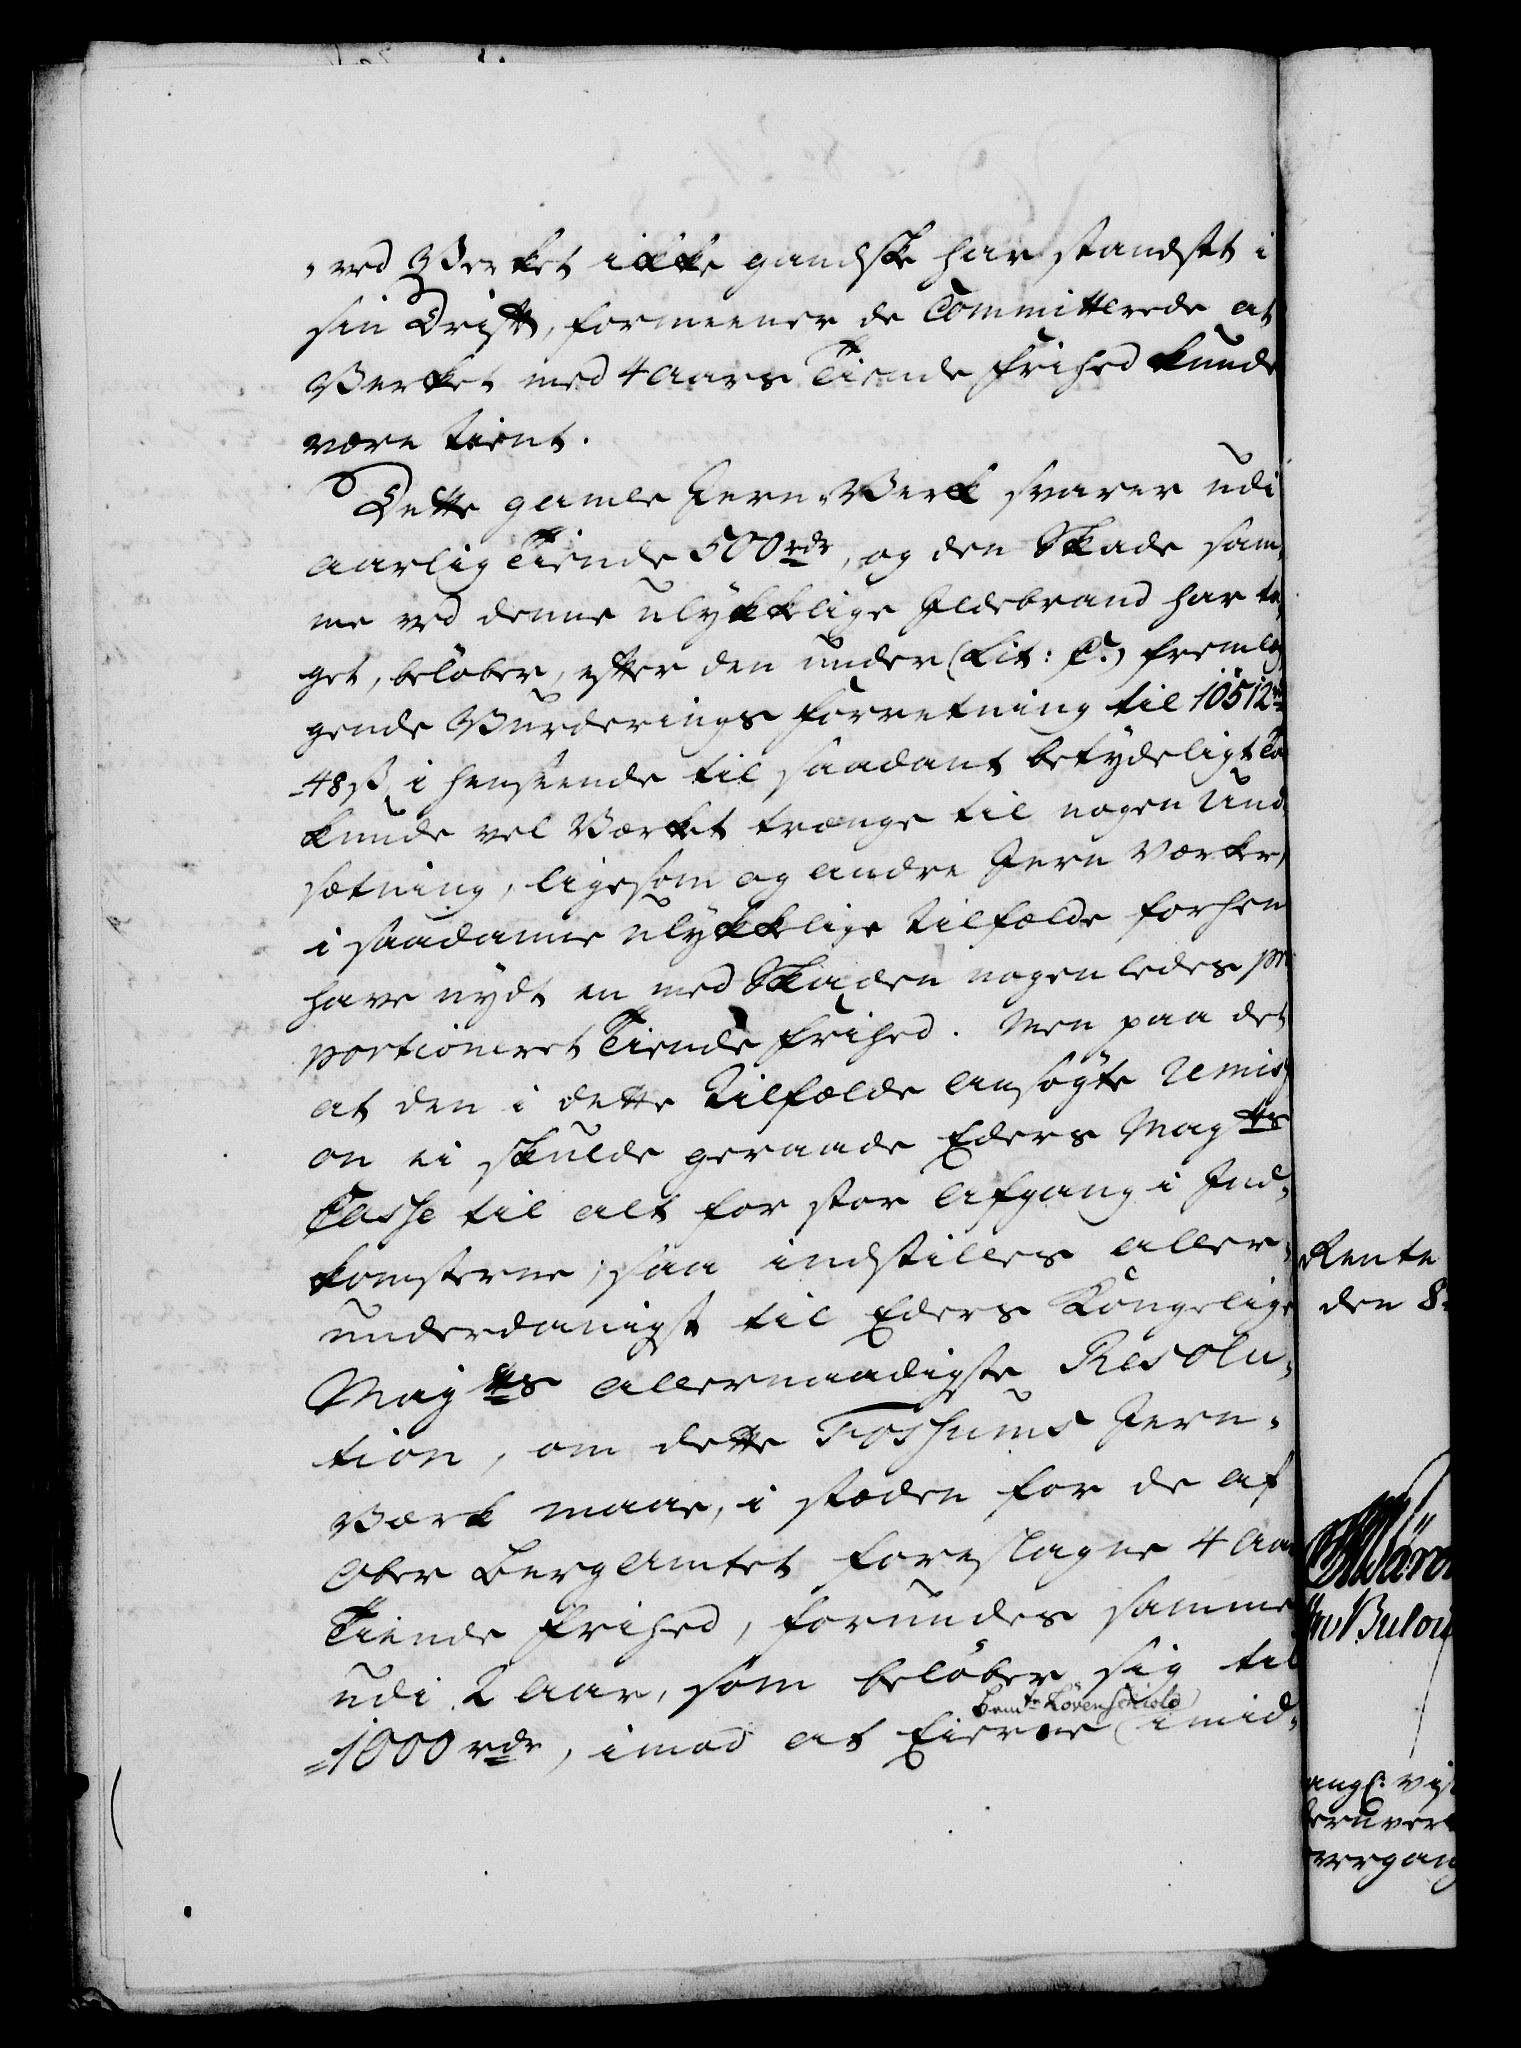 „ved Verket ikke gandske har standset i
sin Drift, formeener de Committerede at
Verket med 4 Aars Tiende Frihed kunde
være tient.
Dette gamle Jern-Verk svarer udi
aarlig Tiende 500 rdr, og den Skade sam„
me ved denne ulykkelige Ildebrand har ta„
get, beløber, efter den under (Lit: C.) fremleg„
gende Vurderings Forretning til 10512 rd
48 ß, i henseende til saadant betydeligt Ta
kunde vel Værket trænge til nogen Und
sætning, ligesom og andre Jern Værker,
i saadanne ulykkelige Tilfælde forhen
have nydt en med Skaden nogenledes pro
portioneret Tiende Frihed. Men paa det
at den i dette Tilfælde ansøgte Remiss
on ei skulde geraade Eders Mayts
Casse til alt for stor Afgang i Ind„
komsterne; saa indstilles aller„
underdanigst til Eders Kongelige
Mayts allernaadigste Resolu„
tion, om dette Fossums Jern-
Værk maae, i stæden for de af
Ober Bergamtet foreslagne 4 Aar
Tiende Frihed, forundes samme
udi 2 Aar, som beløber sig til
Bemte Løvenschiold
1000 rdr, imod at Eierne imid„
Rente
den 8
Bulow